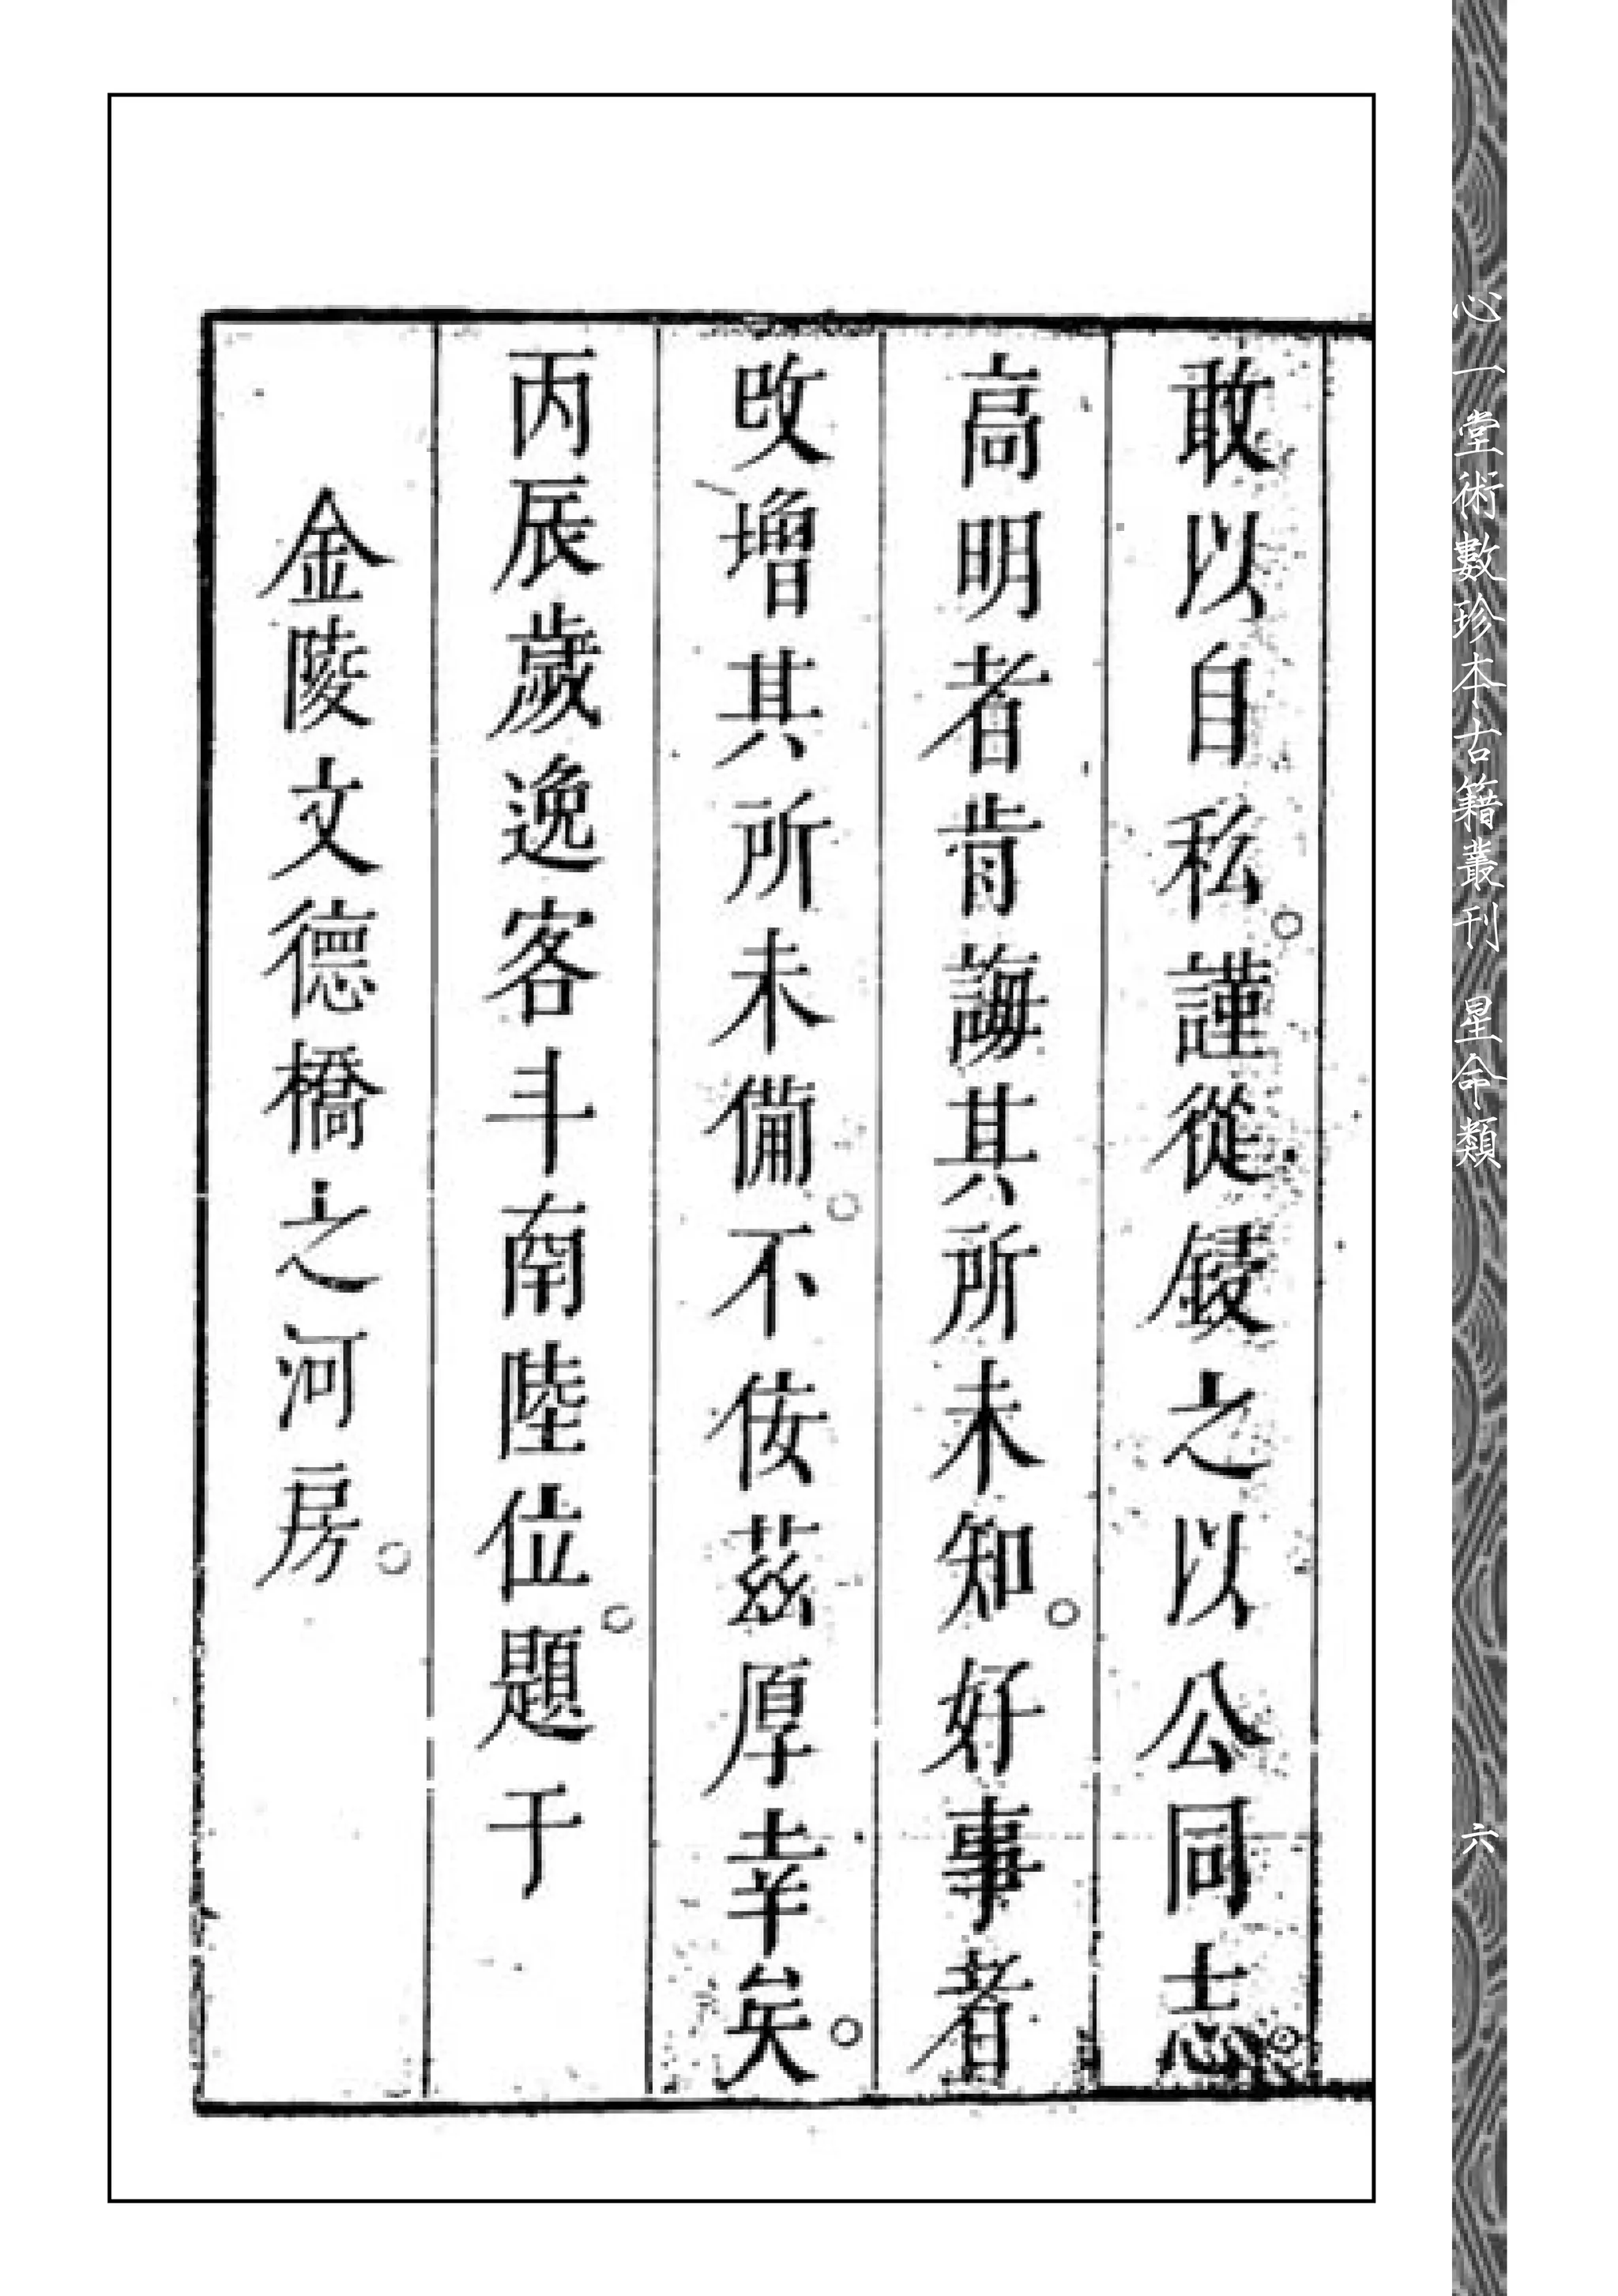 敢以自私。謹從鋟之以公同志。
高明者肯誨其所未知。好事者
改增其所未備。不佞茲厚幸矣。
丙辰歲逸客斗南陸位。題于
金陵文德橋之河房。
心一堂術數珍本古籍叢刊 星命類
六